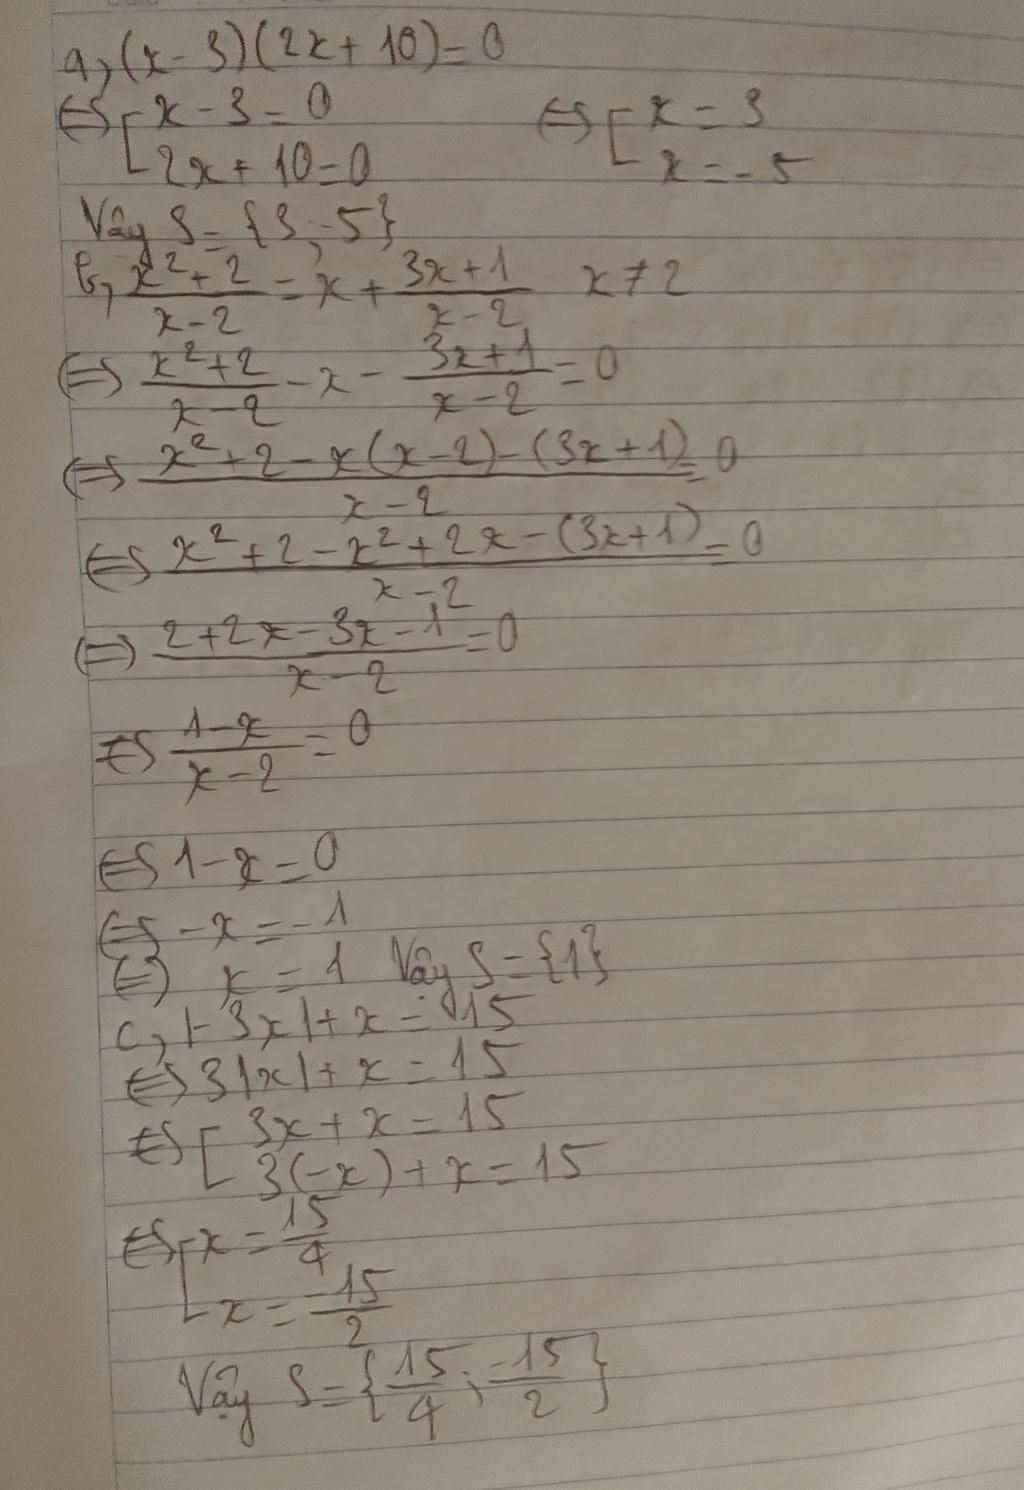 a, (x - 3)(2x + 10) = 0
⇔ [ x - 3 = 0 ⇔ [ x = 3
2x + 10 = 0 x = -5
Vậy S = {3; -5}
b, \frac{x² + 2}{x - 2} = x + \frac{3x + 1}{x - 2} x ≠ 2
⇔ \frac{x² + 2}{x - 2} - x - \frac{3x + 1}{x - 2} = 0
⇔ \frac{x² + 2 - x(x - 2) - (3x + 1)}{x - 2} = 0
⇔ \frac{x² + 2 - x² + 2x - (3x + 1)}{x - 2} = 0
⇔ \frac{2 + 2x - 3x - 1}{x - 2} = 0
⇔ \frac{1 - x}{x - 2} = 0
⇔ 1 - x = 0
⇔ -x = -1
⇔ x = 1 Vậy S = {1}
c, |-3x| + x = 15
⇔ 3|x| + x = 15
⇔ [ 3x + x = 15
3(-x) + x = 15
⇔ [ x = \frac{15}{4}
x = \frac{-15}{2}
Vậy S = {\frac{15}{4}; \frac{-15}{2}}